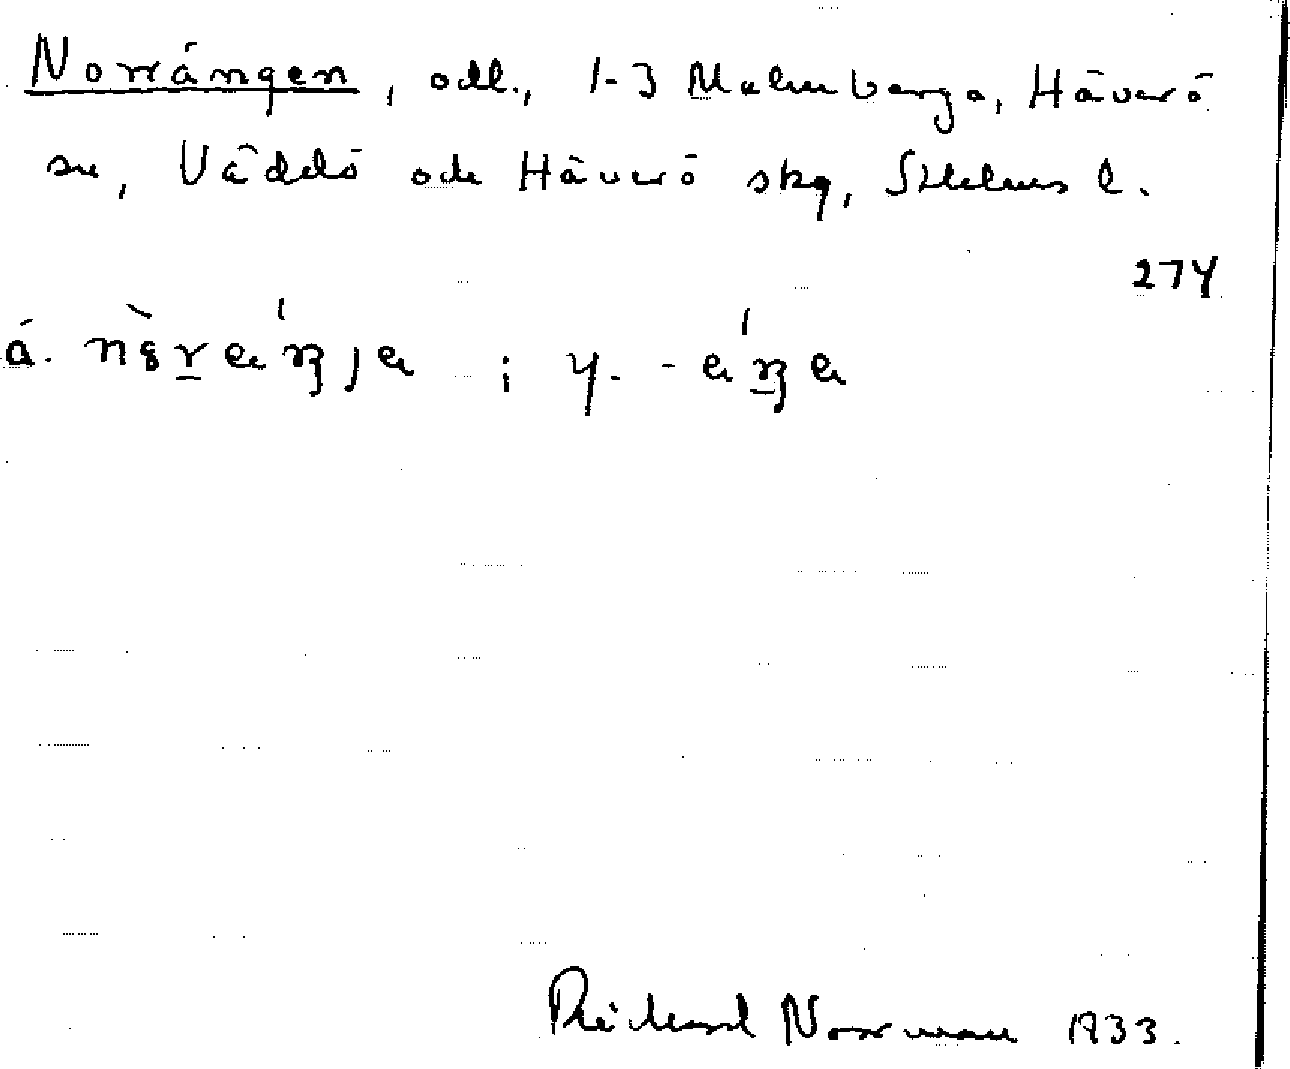 Norrängen, odl., 1-3 Malmberga, Häverö
sn, Väddö och Häverö skg, Sthlms l.
274
ä.
; y. -
Richard Norrman 1933.